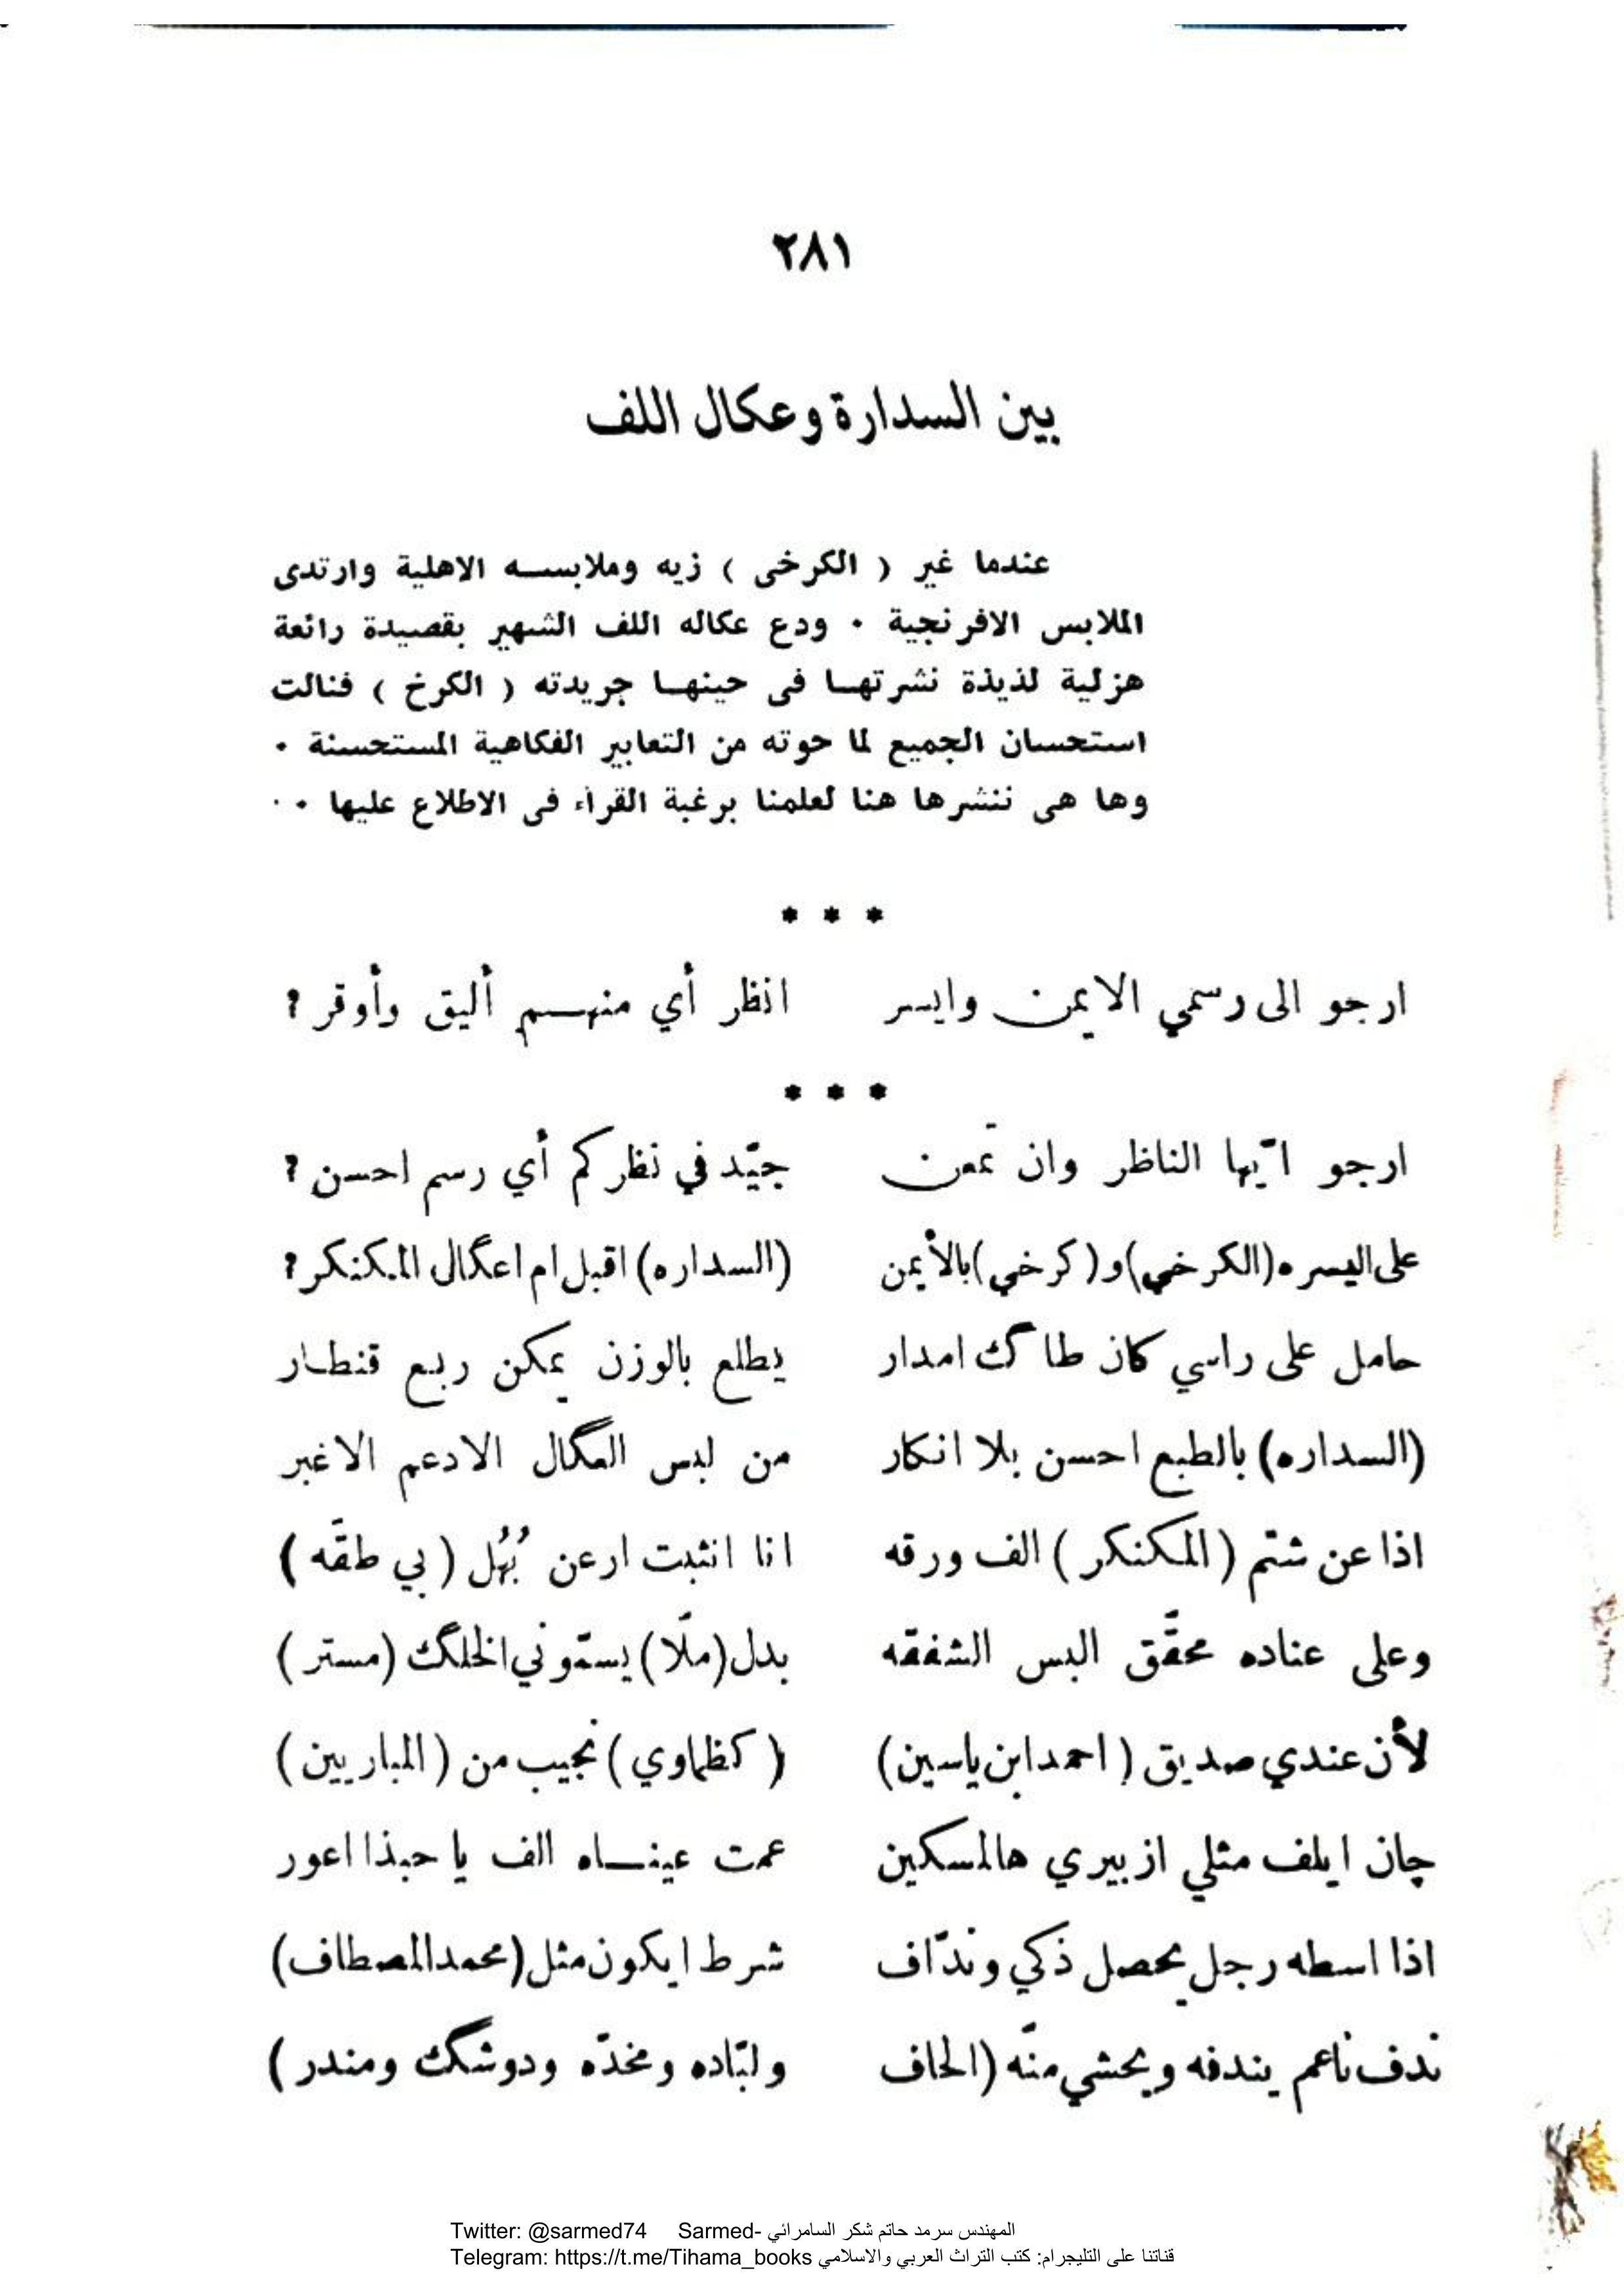 ٢٨١
بين السدارة وعكال اللف
عندما غير ( الكرخى ) زيه وملابسه الاهلية وارتدى
الملابس الافرنجية ٠ ودع عكاله اللف الشهير بقصيدة رائعة
هزلية لذيذة نشرتها فى حينها جريدته ( الكرخ ) فنالت
استحسان الجميع لما حوته من التعابير الفكاهية المستحسنة ٠
وها هى ننشرها هنا لعلمنا برغبة القراء فى الاطلاع عليها ٠ ٠
* * *
ارجو الى رسمي الايمن وايسر انظر أي منهم أليق وأوقر ؟
* * *
ارجو ايّها الناظر وان تمّعن جيّد في نظركم أي رسم احسن ؟
على اليسره (الكرخي) و (كرخي) بالأيمن (السداره) اقبل ام اعگال المكنكر ؟
حامل على راسي كان طاگ امدار يطلع بالوزن يمكن ربع قنطار
(السداره) بالطبع احسن بلا انكار من لبس العگال الادعم الاغبر
اذا عن شتم ( المكنكر ) الف ورقه انا انثبت ارعن بُهُل ( بي طقّه )
وعلى عناده محقّق البس الشفقه بدل (ملّا) يسمّوني الخلگ (مستر)
لأن عندي صديق ( احمد ابن ياسين) ( كظماوي ) نجيب من ( المباريين )
چان ايلف مثلي ازبيري هالمسكين عمت عيناه الف يا حبذا اعور
اذا اسطه رجل يحصل ذكي وندّاف شرط ايكون مثل (محمد المصطاف)
ندف ناعم يندفه ويحشي منّه (الحاف ولبّاده ومخدّه ودوشگ ومندر )
Twitter: @sarmed74 Sarmed- المهندس سرمد حاتم شكر السامرائي
Telegram: https://t.me/Tihama_books قناتنا على التليجرام: كتب التراث العربي والاسلامي